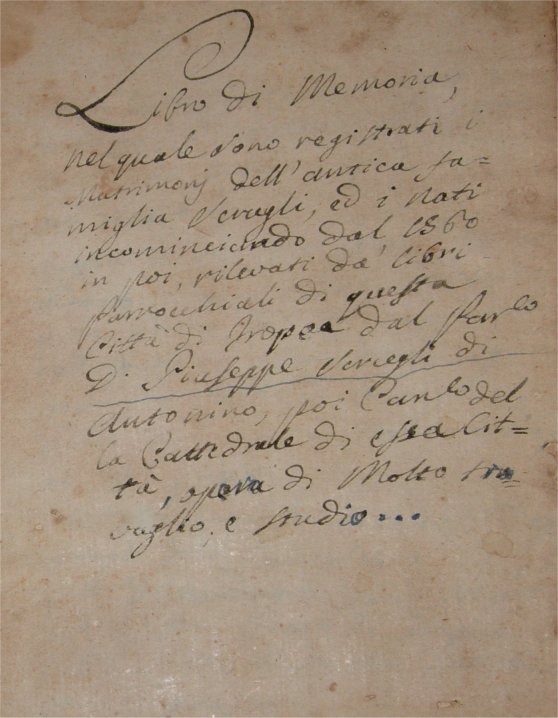 Libro di Memoria,
nel quale sono registrati i
Matrimonj dell'antica fa-
miglia Scrugli, ed i Nati
incominciando dal 1560
in poi, rilevati da' libri
Parrocchiali di questa
Città di Tropea dal Par.co
D. Giuseppe Scrugli di
Antonino, poi Can.co del
la Cattedrale di essa Cit=
tà, opera di Molto tra-
vaglio, e studio...